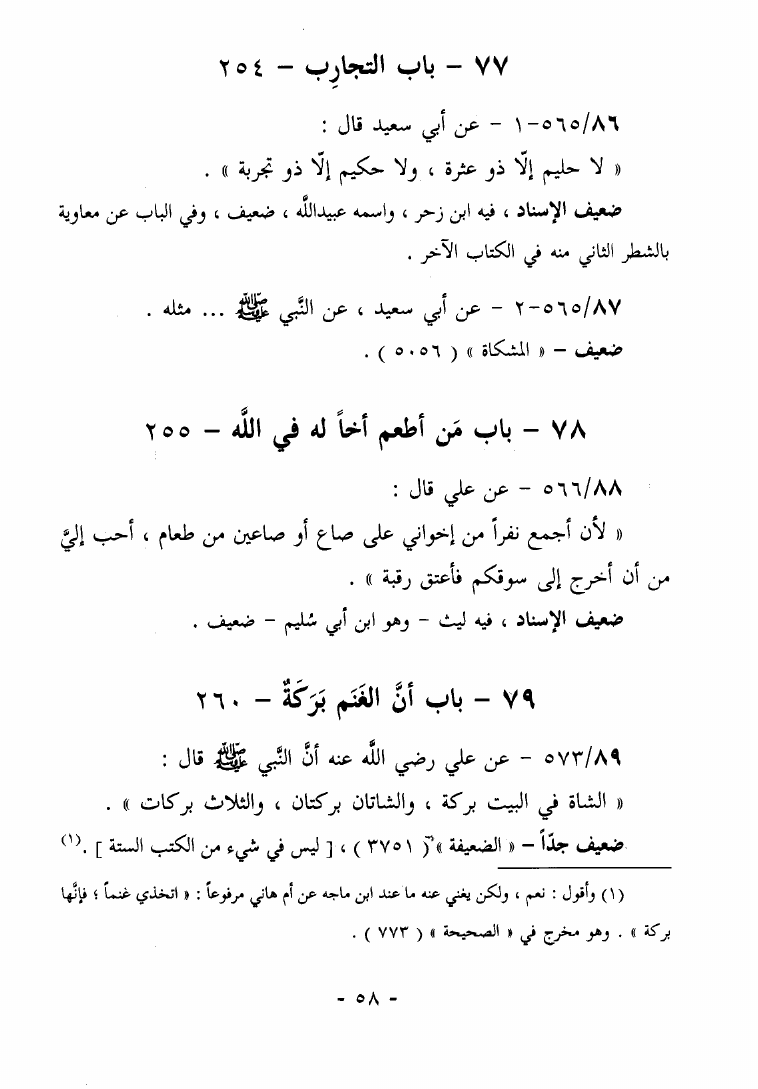 ٧٧ – باب التجارِب – ٢٥٤
٨٦/٥٦٥-١ – عن أبي سعيد قال :
« لا حليم إلّا ذو عثرة ، ولا حكيم إلّا ذو تجربة » .
ضعيف الإسناد ، فيه ابن زحر ، واسمه عبيدالله ، ضعيف ، وفي الباب عن معاوية
بالشطر الثاني منه في الكتاب الآخر .
٨٧/٥٦٥-٢ – عن أبي سعيد ، عن النَّبي ﷺ ... مثله .
ضعيف – « المشكاة » ( ٥٠٥٦ ) .
٧٨ – باب مَن أطعم أخاً له في اللَّه – ٢٥٥
٨٨/٥٦٦ – عن علي قال :
« لأن أجمع نفراً من إخواني على صاع أو صاعين من طعام ، أحب إليَّ
من أن أخرج إلى سوقكم فأعتق رقبة » .
ضعيف الإسناد ، فيه ليث – وهو ابن أبي سُليم – ضعيف .
٧٩ – باب أنَّ الغَنَم بَرَكَةٌ – ٢٦٠
٨٩/٥٧٣ – عن علي رضي اللَّه عنه أنَّ النَّبي ﷺ قال :
« الشاة في البيت بركة ، والشاتان بركتان ، والثلاث بركات » .
ضعيف جدّاً – « الضعيفة » ( ٣٧٥١ ) ، [ ليس في شيء من الكتب الستة ] .(١)
(١) وأقول : نعم ، ولكن يغني عنه ما عند ابن ماجه عن أم هاني مرفوعاً : « اتخذي غنماً ؛ فإنَّها
بركة » . وهو مخرج في « الصحيحة » ( ٧٧٣ ) .
- ٥٨ -